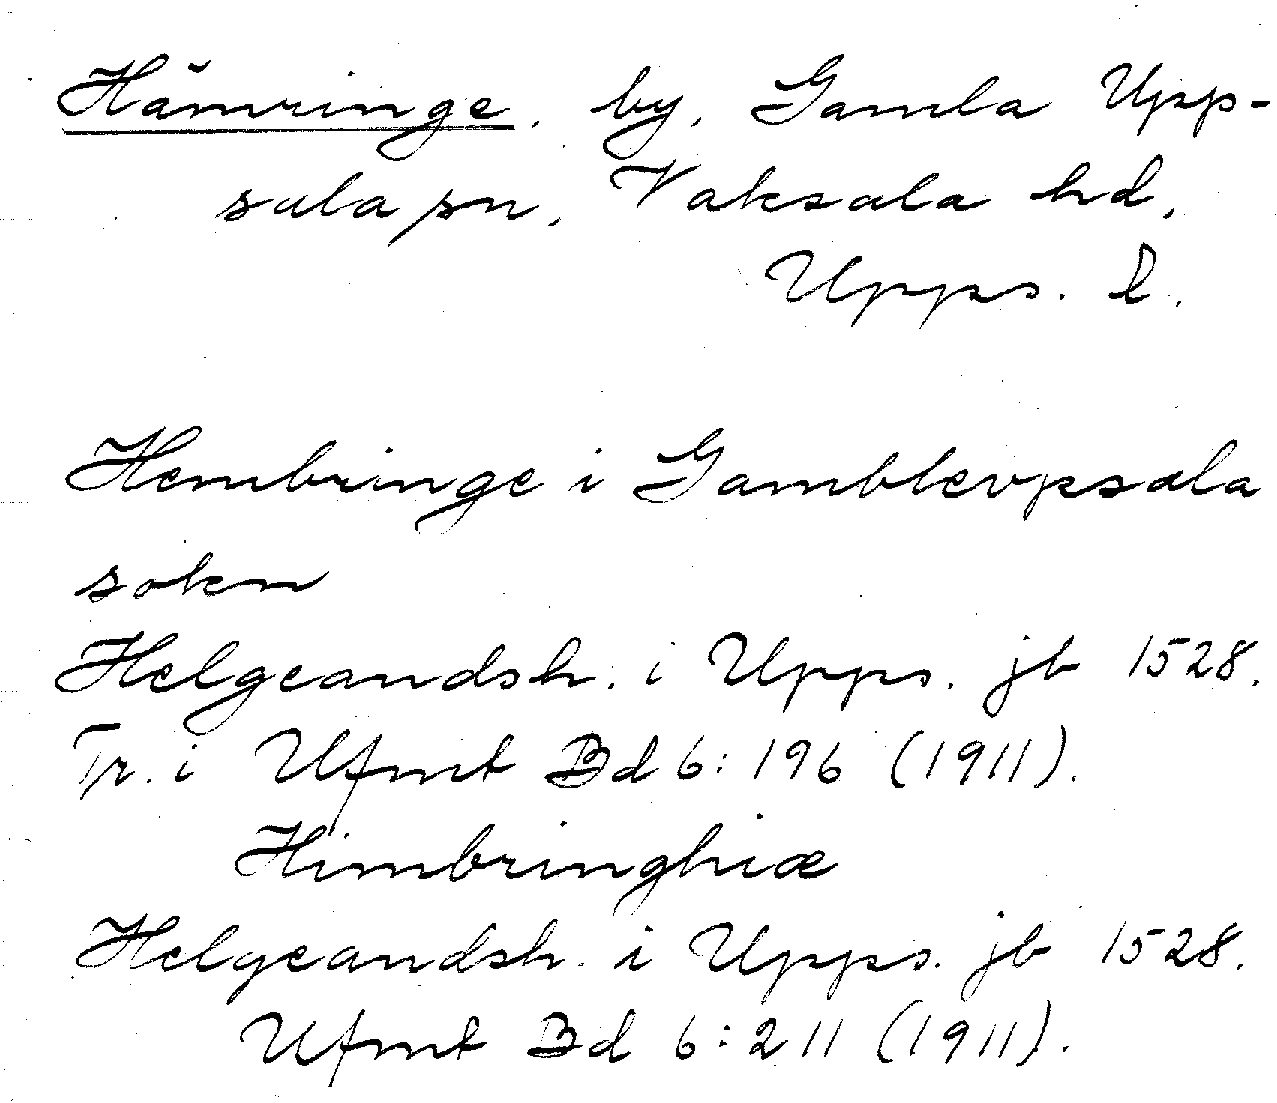 Hämringe, by, Gamla Upp-
sala sn, Vaksala hd,
Upps. l.
Hembringe i Gamblevpsala
sokn
Helgeandsh. i Upps. jb 1528.
Tr. i Ufmt Bd 6: 196 (1911).
Himbringhiæ
Helgeandsh. i Upps. jb 1528.
Ufmt Bd 6: 211 (1911).